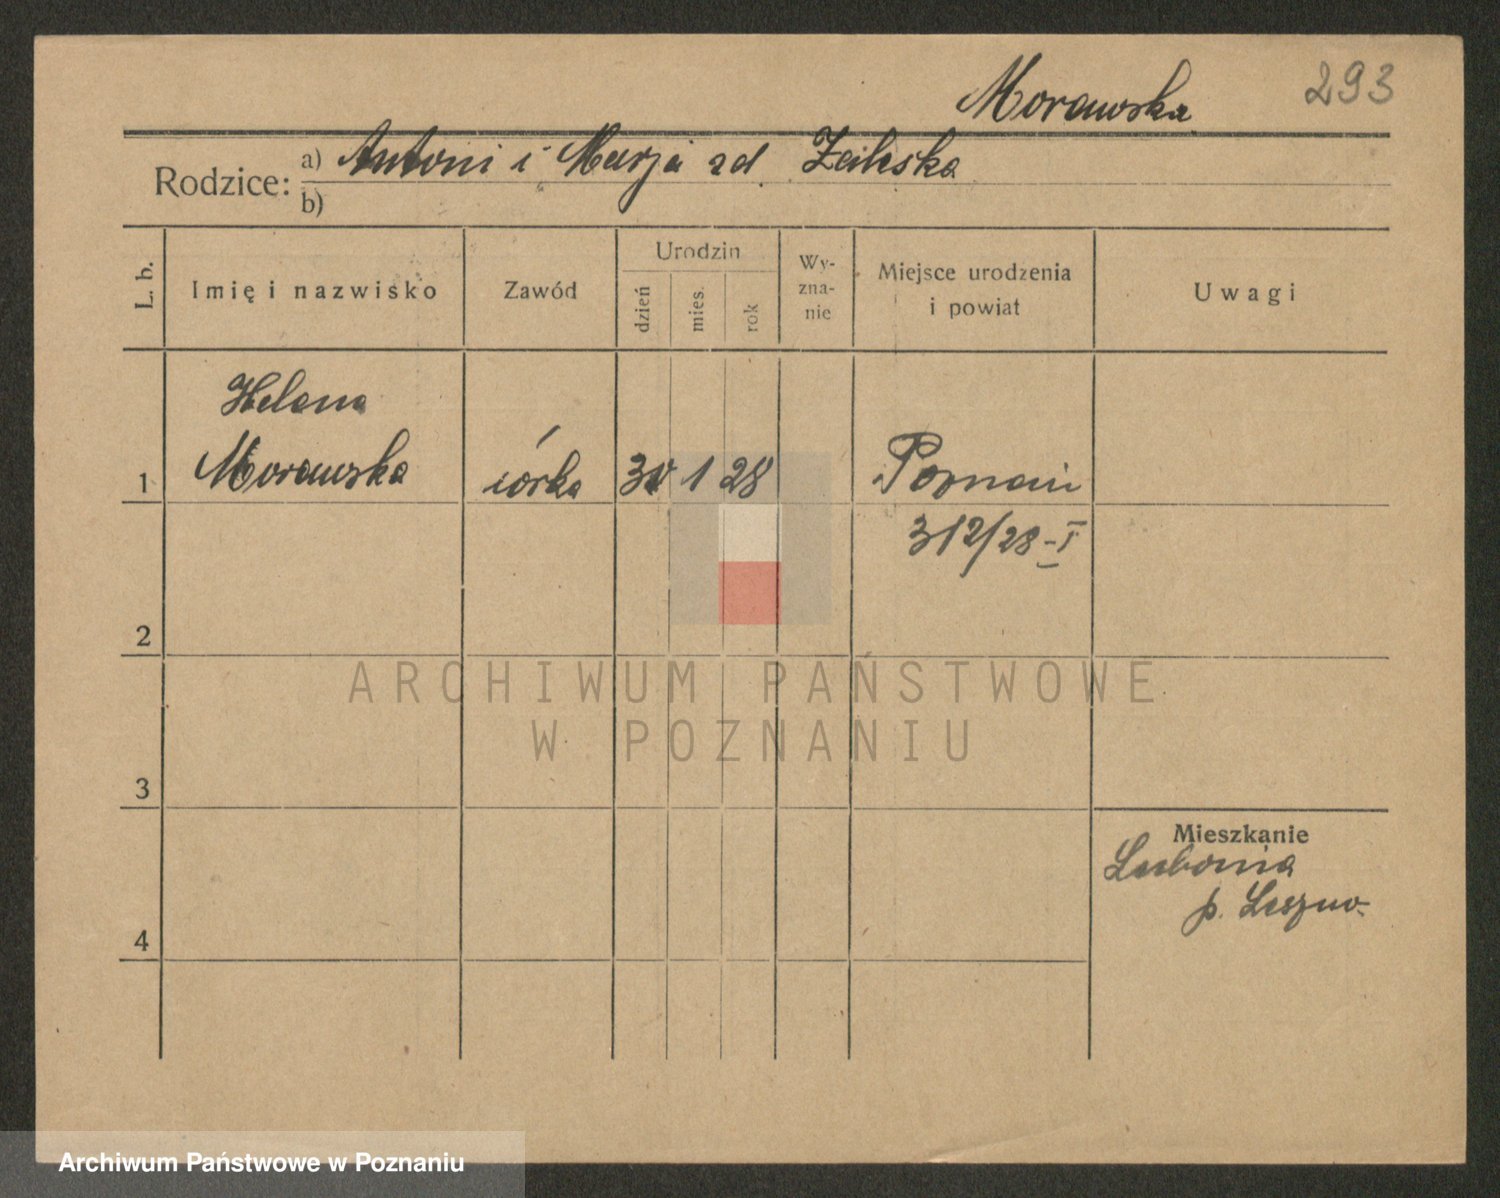 293
Morawska
Rodzice: a) Antoni i Marja zd. Zaleska
b)
L. b.
Imię i nazwisko
Zawód
Urodzin
dzień
mies.
rok
Wy-
zna-
nie
Miejsce urodzenia
i powiat
Uwagi
Helena
1 Morawska córka 1 28 Poznań
312/28-I
2
ARCHIWUM PAŃSTWOWE
W POZNANIU
3
Mieszkanie
Lubonia
p. Leszno.
4
Archiwum Państwowe w Poznaniu